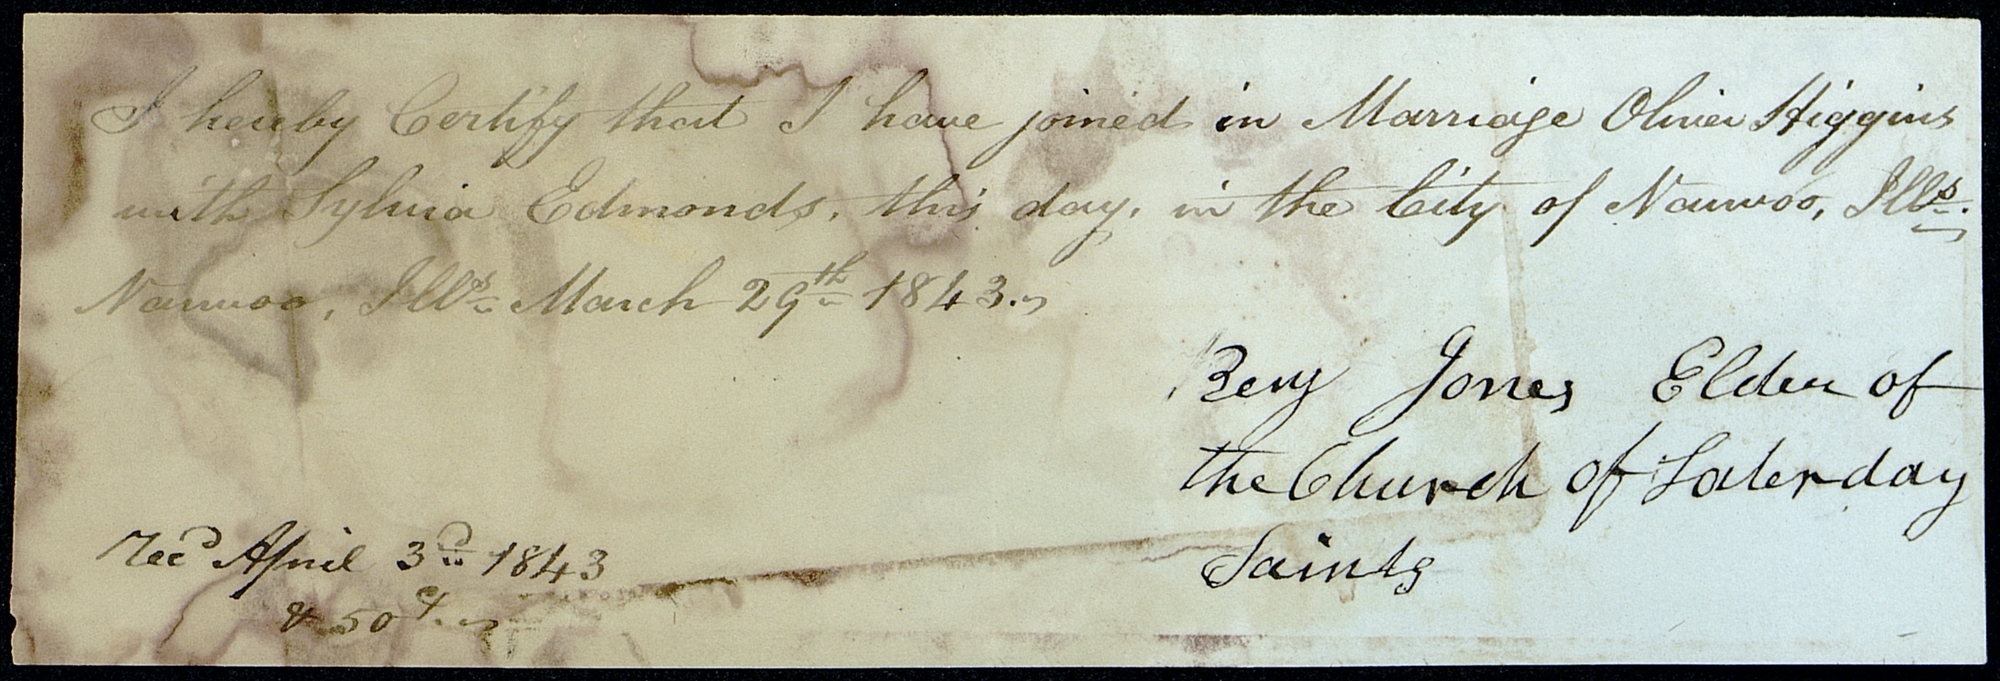 I hereby Certify that I have joined in Marriage Oliver Higgins
with Sylvia Edmonds, this day, in the City of Nauvoo, Ills.
Nauvoo, Ills. March 29th 1843.
Benj Jones Elder of
the Church of Laterday
Saints
Recd April 3d 1843
& 50 ct.